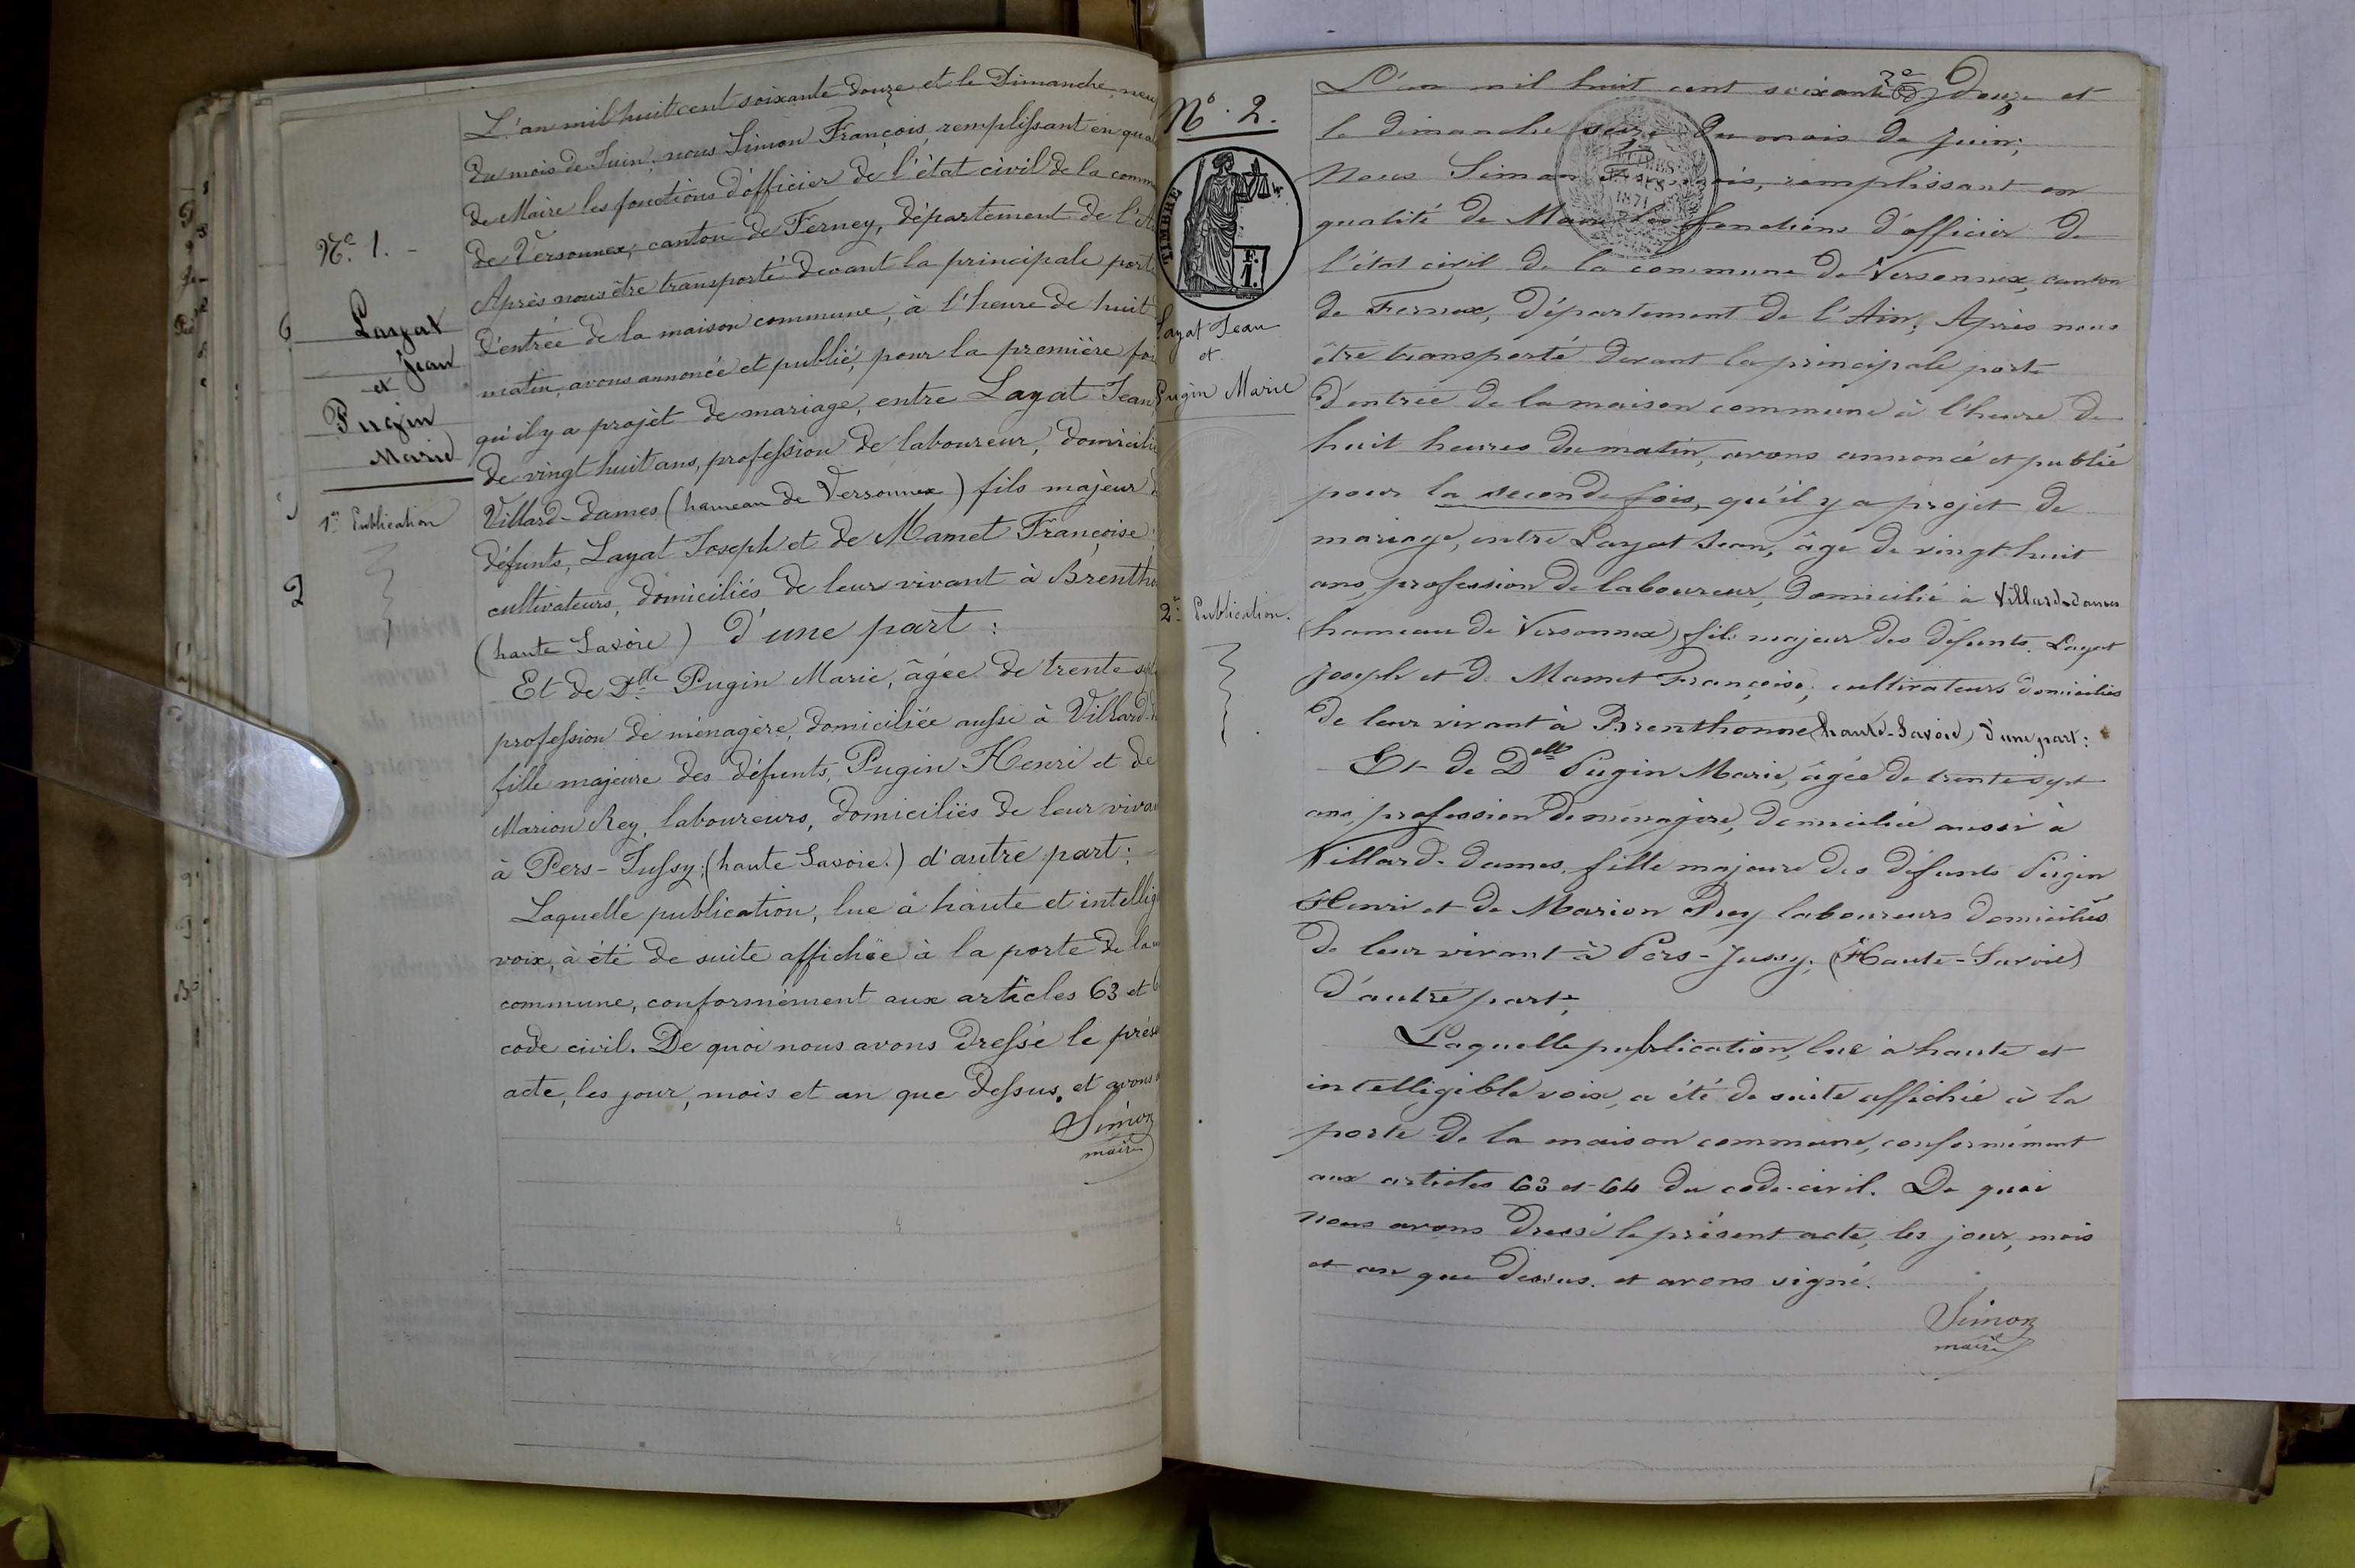 L'an mil huit cent soixante douze et le Dimanche neu
du mois de Juin, nous Simon François, remplissant en qua
de Maire les fonctions d'officier de l'état civil de la comm
de Versonnex, canton de Ferney, département de l'A
Après nous être transporté devant la principale porte
d'entrée de la maison commune, à l'heure de huit
matin, avons annoncé et publié, pour la première foi
qu'il y a projèt de mariage, entre Layat Jean
de vingt huit ans, profession de laboureur, domicilié
Villard-dames (hameau de Versonnex) fils majeur d
défunts, Layat Joseph et de Mamet Françoise
cultivateurs, domiciliés de leur vivant à Brentho
(haute Savoie) d'une part:
Et de Dlle Pugin Marie, âgée de trente sept
profession de ménagère, domiciliée aussi à Villard-d
fille majeure des défunts, Pugin Henri et de
Marion Rey, laboureurs, domiciliés de leur vivan
à Pers-Jussy; (haute Savoie.) d'autre part:
Laquelle publication, lue à haute et intellig
voix, à été de suite affichée à la porte de la
commune, conformément aux articles 63 et 6
code civil. De quoi nous avons dressé le prése
acte, les jour, mois et an que dessus, et avons
Simon
maire
N° 1.
Layat
Jean
et
Pugin
Marie
1re Publication
N° 2.
TIMBRE
F.
1.
Layat Jean
et
Pugin Marie
2e Publication.
L'an mil huit cent soixante douze et
le dimanche seize du mois de Juin;
Nous Simon François, remplissant en
qualité de Maire les fonctions d'officier de
l'état civil de la commune de Versonnex, canton
de Fernex, département de l'Ain. Après nous
être transporté devant la principale porte
d'entrée de la maison commune à l'heure de
huit heures du matin, avons annoncé et publié
pour la seconde fois, qu'il y a projet de
mariage, entre Layat Jean, âgé de vingt huit
ans, profession de laboureur, domicilié à Villard-dames
(hameau de Versonnex) fils majeur des défunts Layat
Joseph et de Mamet Françoise, cultivateurs domiciliés
de leur vivant à Brenthonne (haute-Savoie) d'une part:
Et de Delle Pugin Marie, âgée de trente sept
ans, profession de ménagère, domiciliée aussi à
Villard-dames, fille majeure des défunts Pugin
Henri et de Marion Rey laboureurs domiciliés
de leur vivant à Pers-Jussy, (Haute-Savoie)
d'autre part;
Laquelle publication, lue à haute et
intelligible voix, a été de suite affichée à la
porte de la maison commune, conformément
aux articles 63 et 64 du code civil. De quoi
nous avons dressé le présent acte, les jour, mois
et an que dessus. et avons signé.
Simon
maire
1871